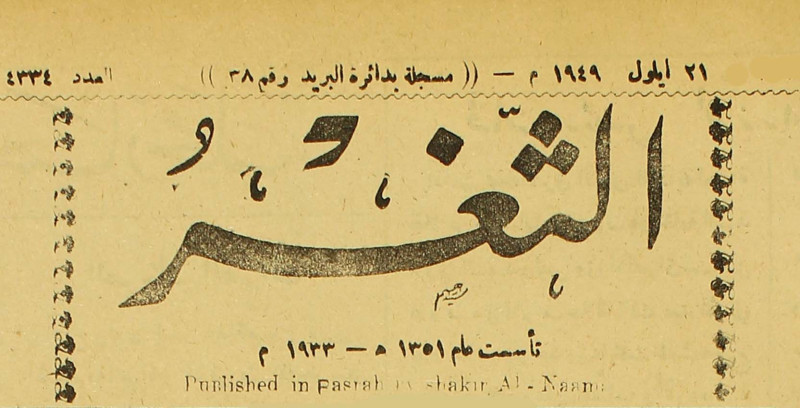 ٢١ ايلول ١٩٤٩ م — (( مسجلة بدائرة البريد ورقم ٣٨ )) العدد ٤٣٣٤
الثغر
تأسست عام ١٣٥١ ه — ١٩٣٣ م
Published in Basrah by shakir Al - Naama